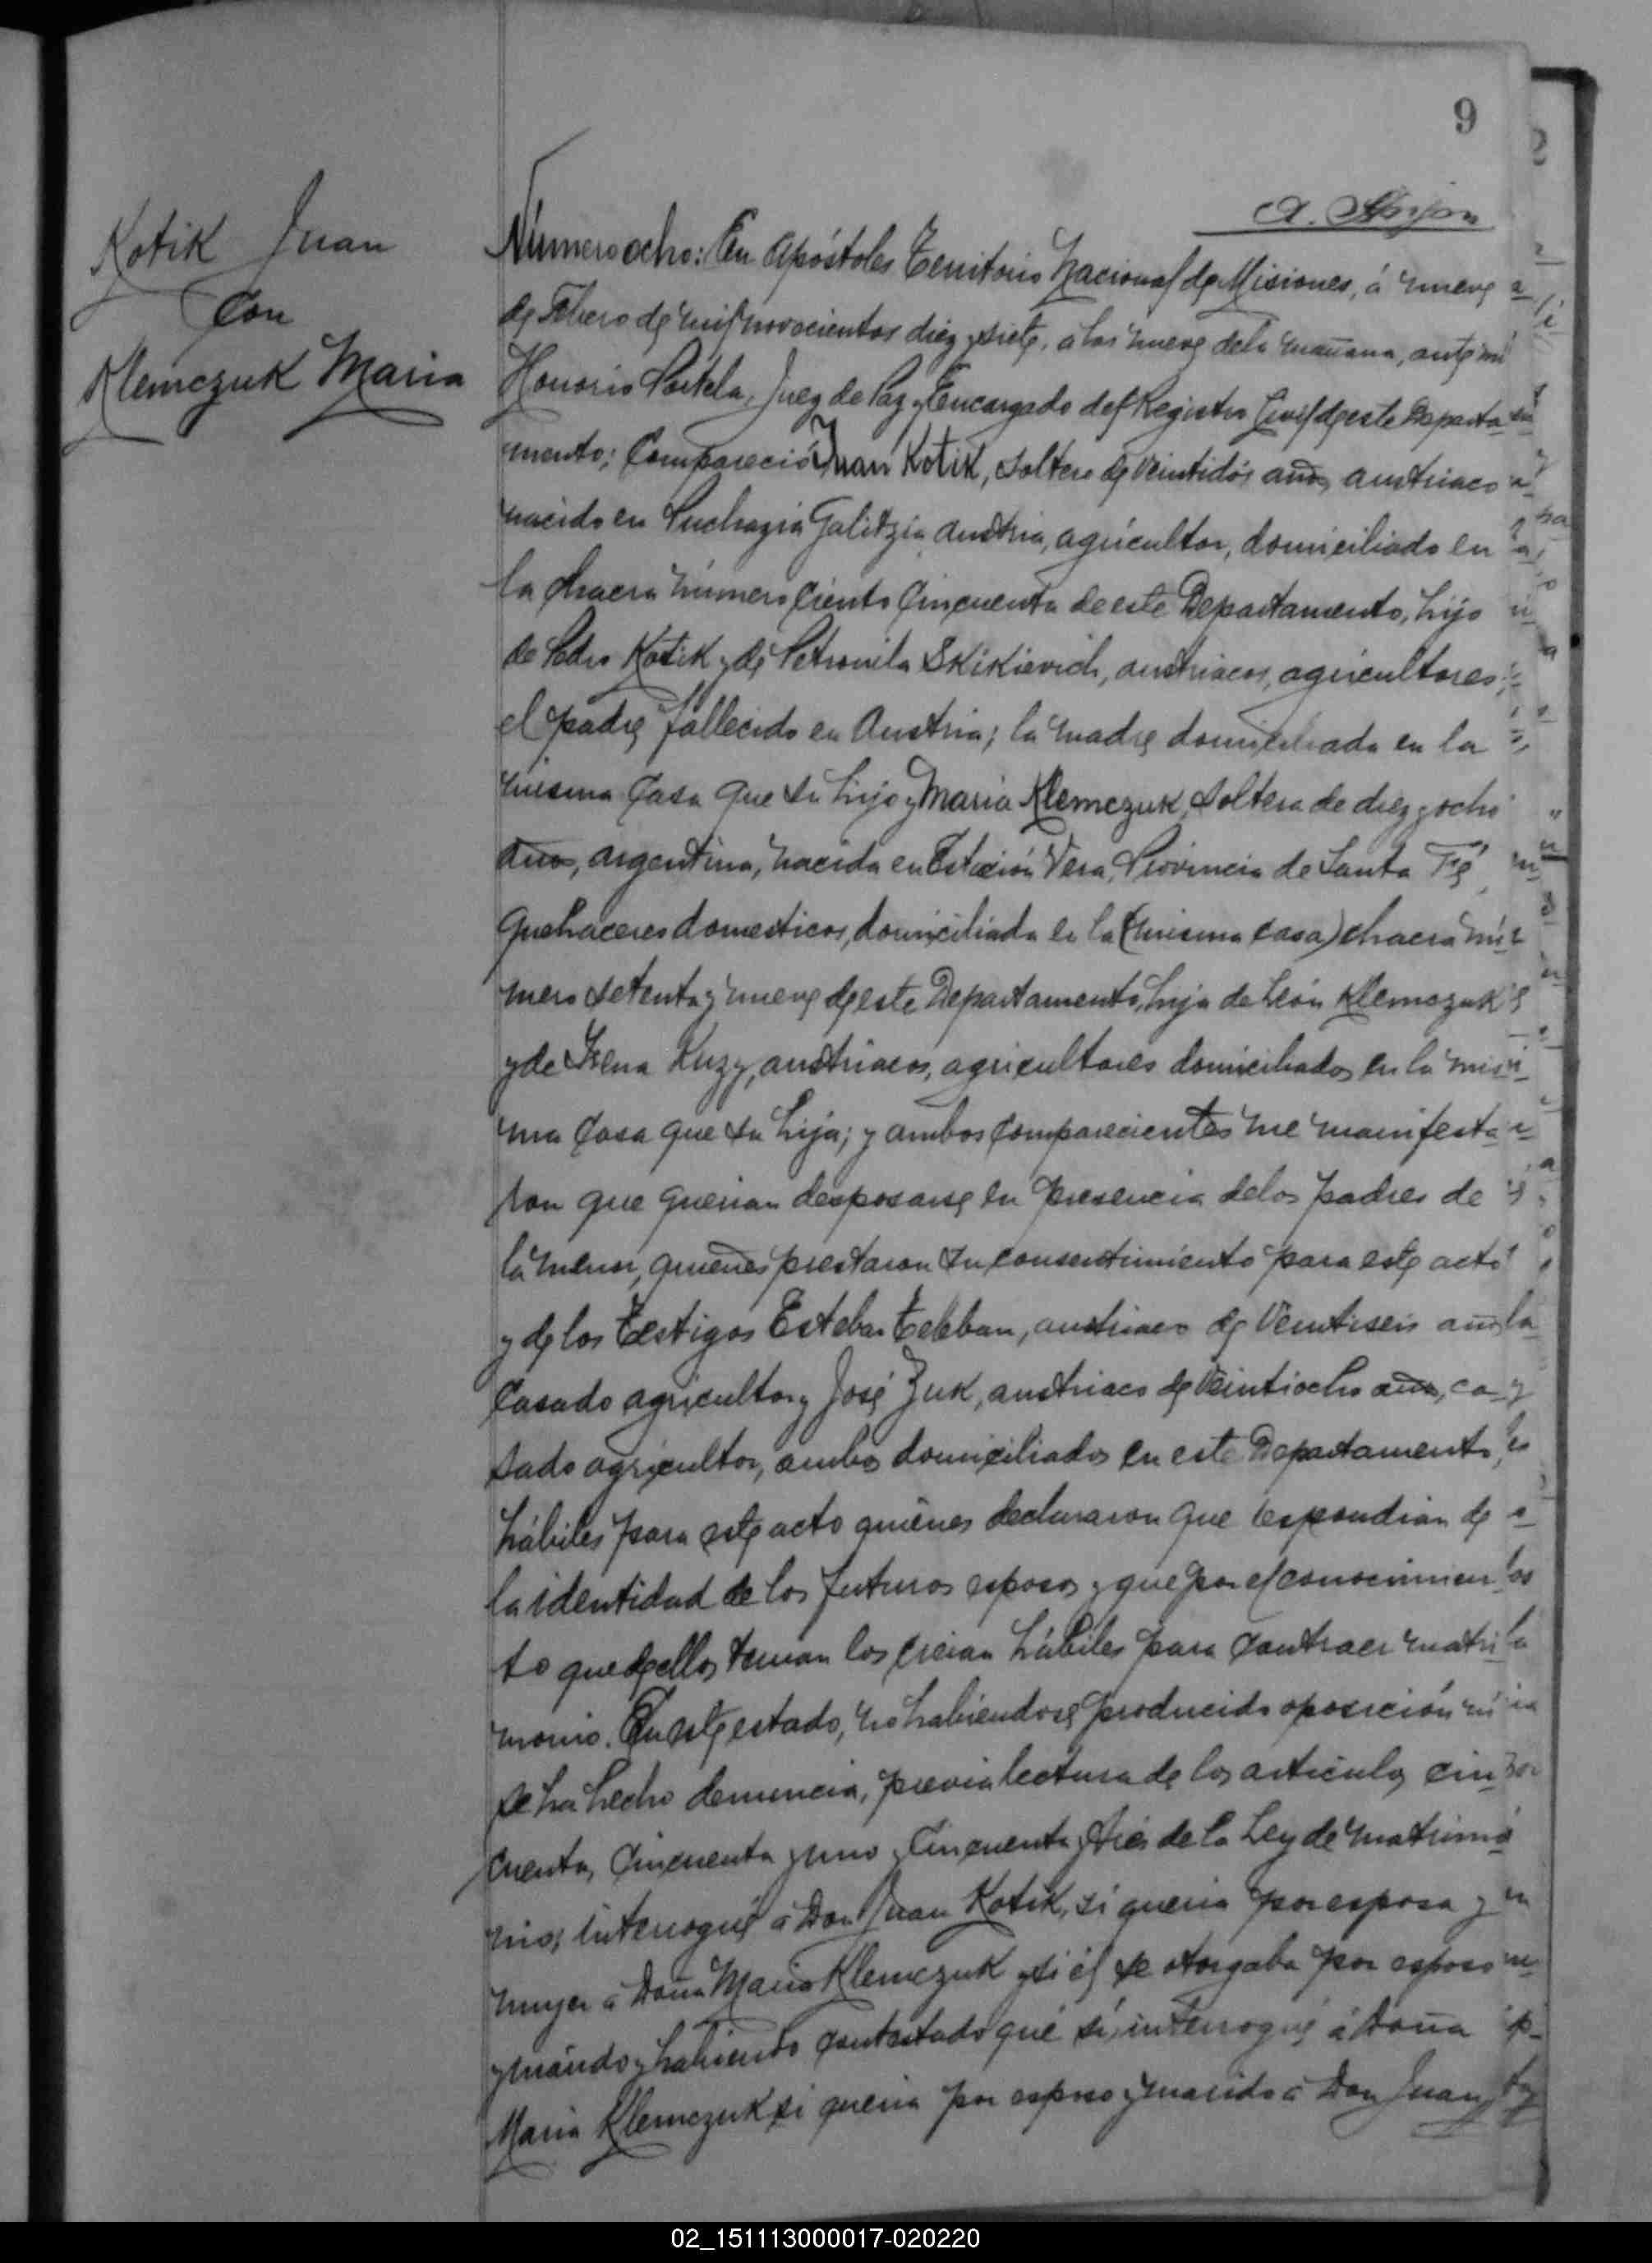 9
Kotik Juan
Con
Klemczuk Maria
Número ocho: En Apóstoles Territorio Nacional de Misiones, á nueve
de Febrero de mil novocientos diez y siete, a las nueve dela mañana, ante mi
Honorio Portela, Juez de Paz y Encargado del Registro Civil de este Departa-
mento; Compareció Juan Kotik, soltero de veintidós años, austriaco
nacido en Galitzia Austria, agricultor, domiciliado en
la chacra número ciento cincuenta de este Departamento, hijo
de Pedro Kotik y de Petronila Skikievich, austriacos, agricultores,
el padre fallecido en Austria; la madre domiciliada en la
misma casa que su hijo y Maria Klemczuk, soltera de diez y ocho
años, argentina, nacida en Estación Vera, Provincia de Santa Fé,
quehaceres domesticos, domiciliada en la (misma casa) chacra nú-
mero setenta y nueve de este Departamento, hija de León Klemczuk
y de Irena Kuzy, austriacos, agricultores domiciliados en la mis-
ma casa que su hija; y ambos comparecientes me manifesta-
ron que querian desposarse en presencia delos padres de
la menor, quienes prestaron su consentimiento para este acto
y de los Testigos Esteban Teleban, austriaco de veintiseis años
casado agricultor y José Zuk, austriaco de veintiocho años, ca-
sado agricultor, ambos domiciliados en este Departamento,
hábiles para este acto quiénes declararon que respondian de
la identidad de los futuros esposos y que por el conocimien-
to que de ellos tenian los creian hábiles para contraer matri-
monio. En este estado, no habiendose producido oposición ni
se ha hecho denuncia, previa lectura de los articulos cin-
cuenta, cincuenta y uno y cincuenta y tres de la Ley de matrimo-
nio, interrogué á Don Juan Kotik, si queria por esposa y
mujer á Doña Maria Klemczuk y si él se otorgaba por esposo
y marido y habiendo contestado que si, interrogué á Doña
Maria Klemczuk si queria por esposo y marido á Don Juan
02_151113000017-020220